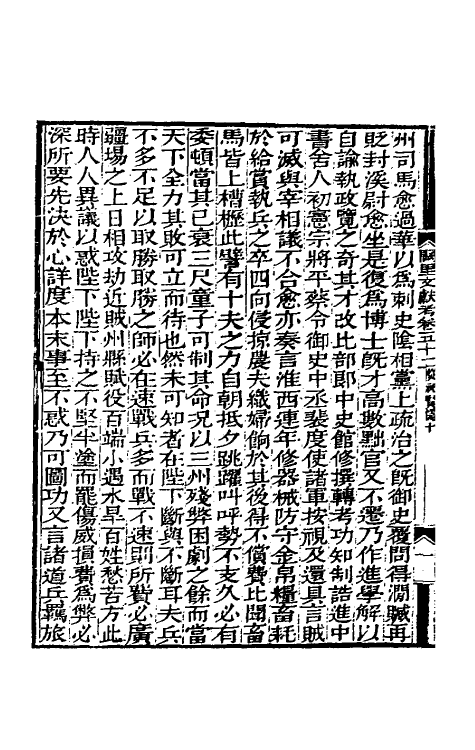 州司馬愈過華以爲刺史陰相黨上疏治之既御史覆問得澗贓再
貶封溪尉愈坐是復爲博士旣才高數黜官又不遷乃作進學解以
自諭執政覽之奇其才改比部郎中史館修撰轉考功知制誥進中
書舍人初憲宗將平蔡令御史中丞裴度使諸軍按視及還具言賊
可滅與宰相議不合愈亦奏言淮西連年修器械防守金帛糧畜耗
於給賞執兵之卒四向侵掠農夫織婦餉於其後得不償費比聞畜
馬皆上槽櫪此譬有十夫之力自朝抵夕跳躍叫呼勢不支久必有
委頓當其已衰三尺童子可制其命況以三州殘弊困劇之餘而當
天下全力其敗可立而待也然未可知者在陛下斷與不斷耳夫兵
不多不足以取勝取勝之師必在速戰兵多而戰不速則所費必廣
疆場之上日相攻劫近賊州縣賦役百端小遇水旱百姓愁苦方此
時人人異議以惑陛下陛下持之不堅半塗而罷傷威損費爲弊必
深所要先決於心詳度本末事至不惑乃可圖功又言諸道兵羈旅
文獻考卷五十一